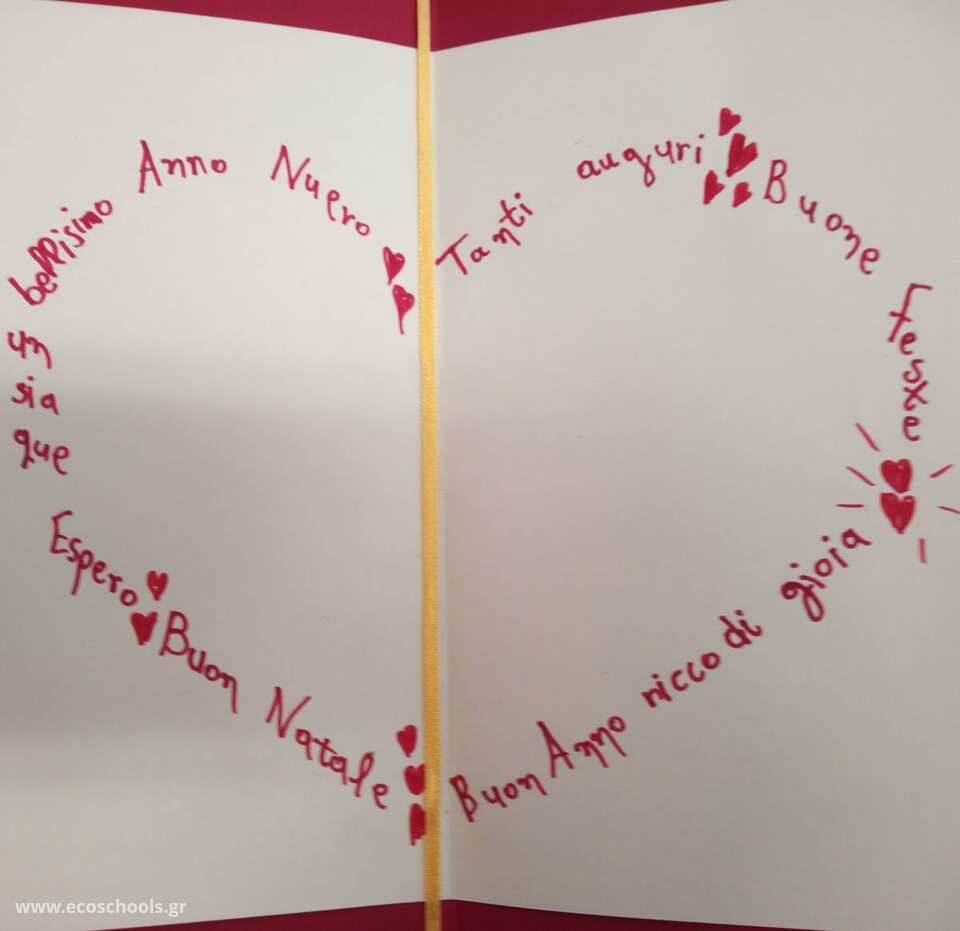 Tanti auguri
Buone Feste
Buon Anno ricco di gioia
Buon Natale
Espero
que
sia
un
bellisimo Anno Nuero
www.ecoschools.gr